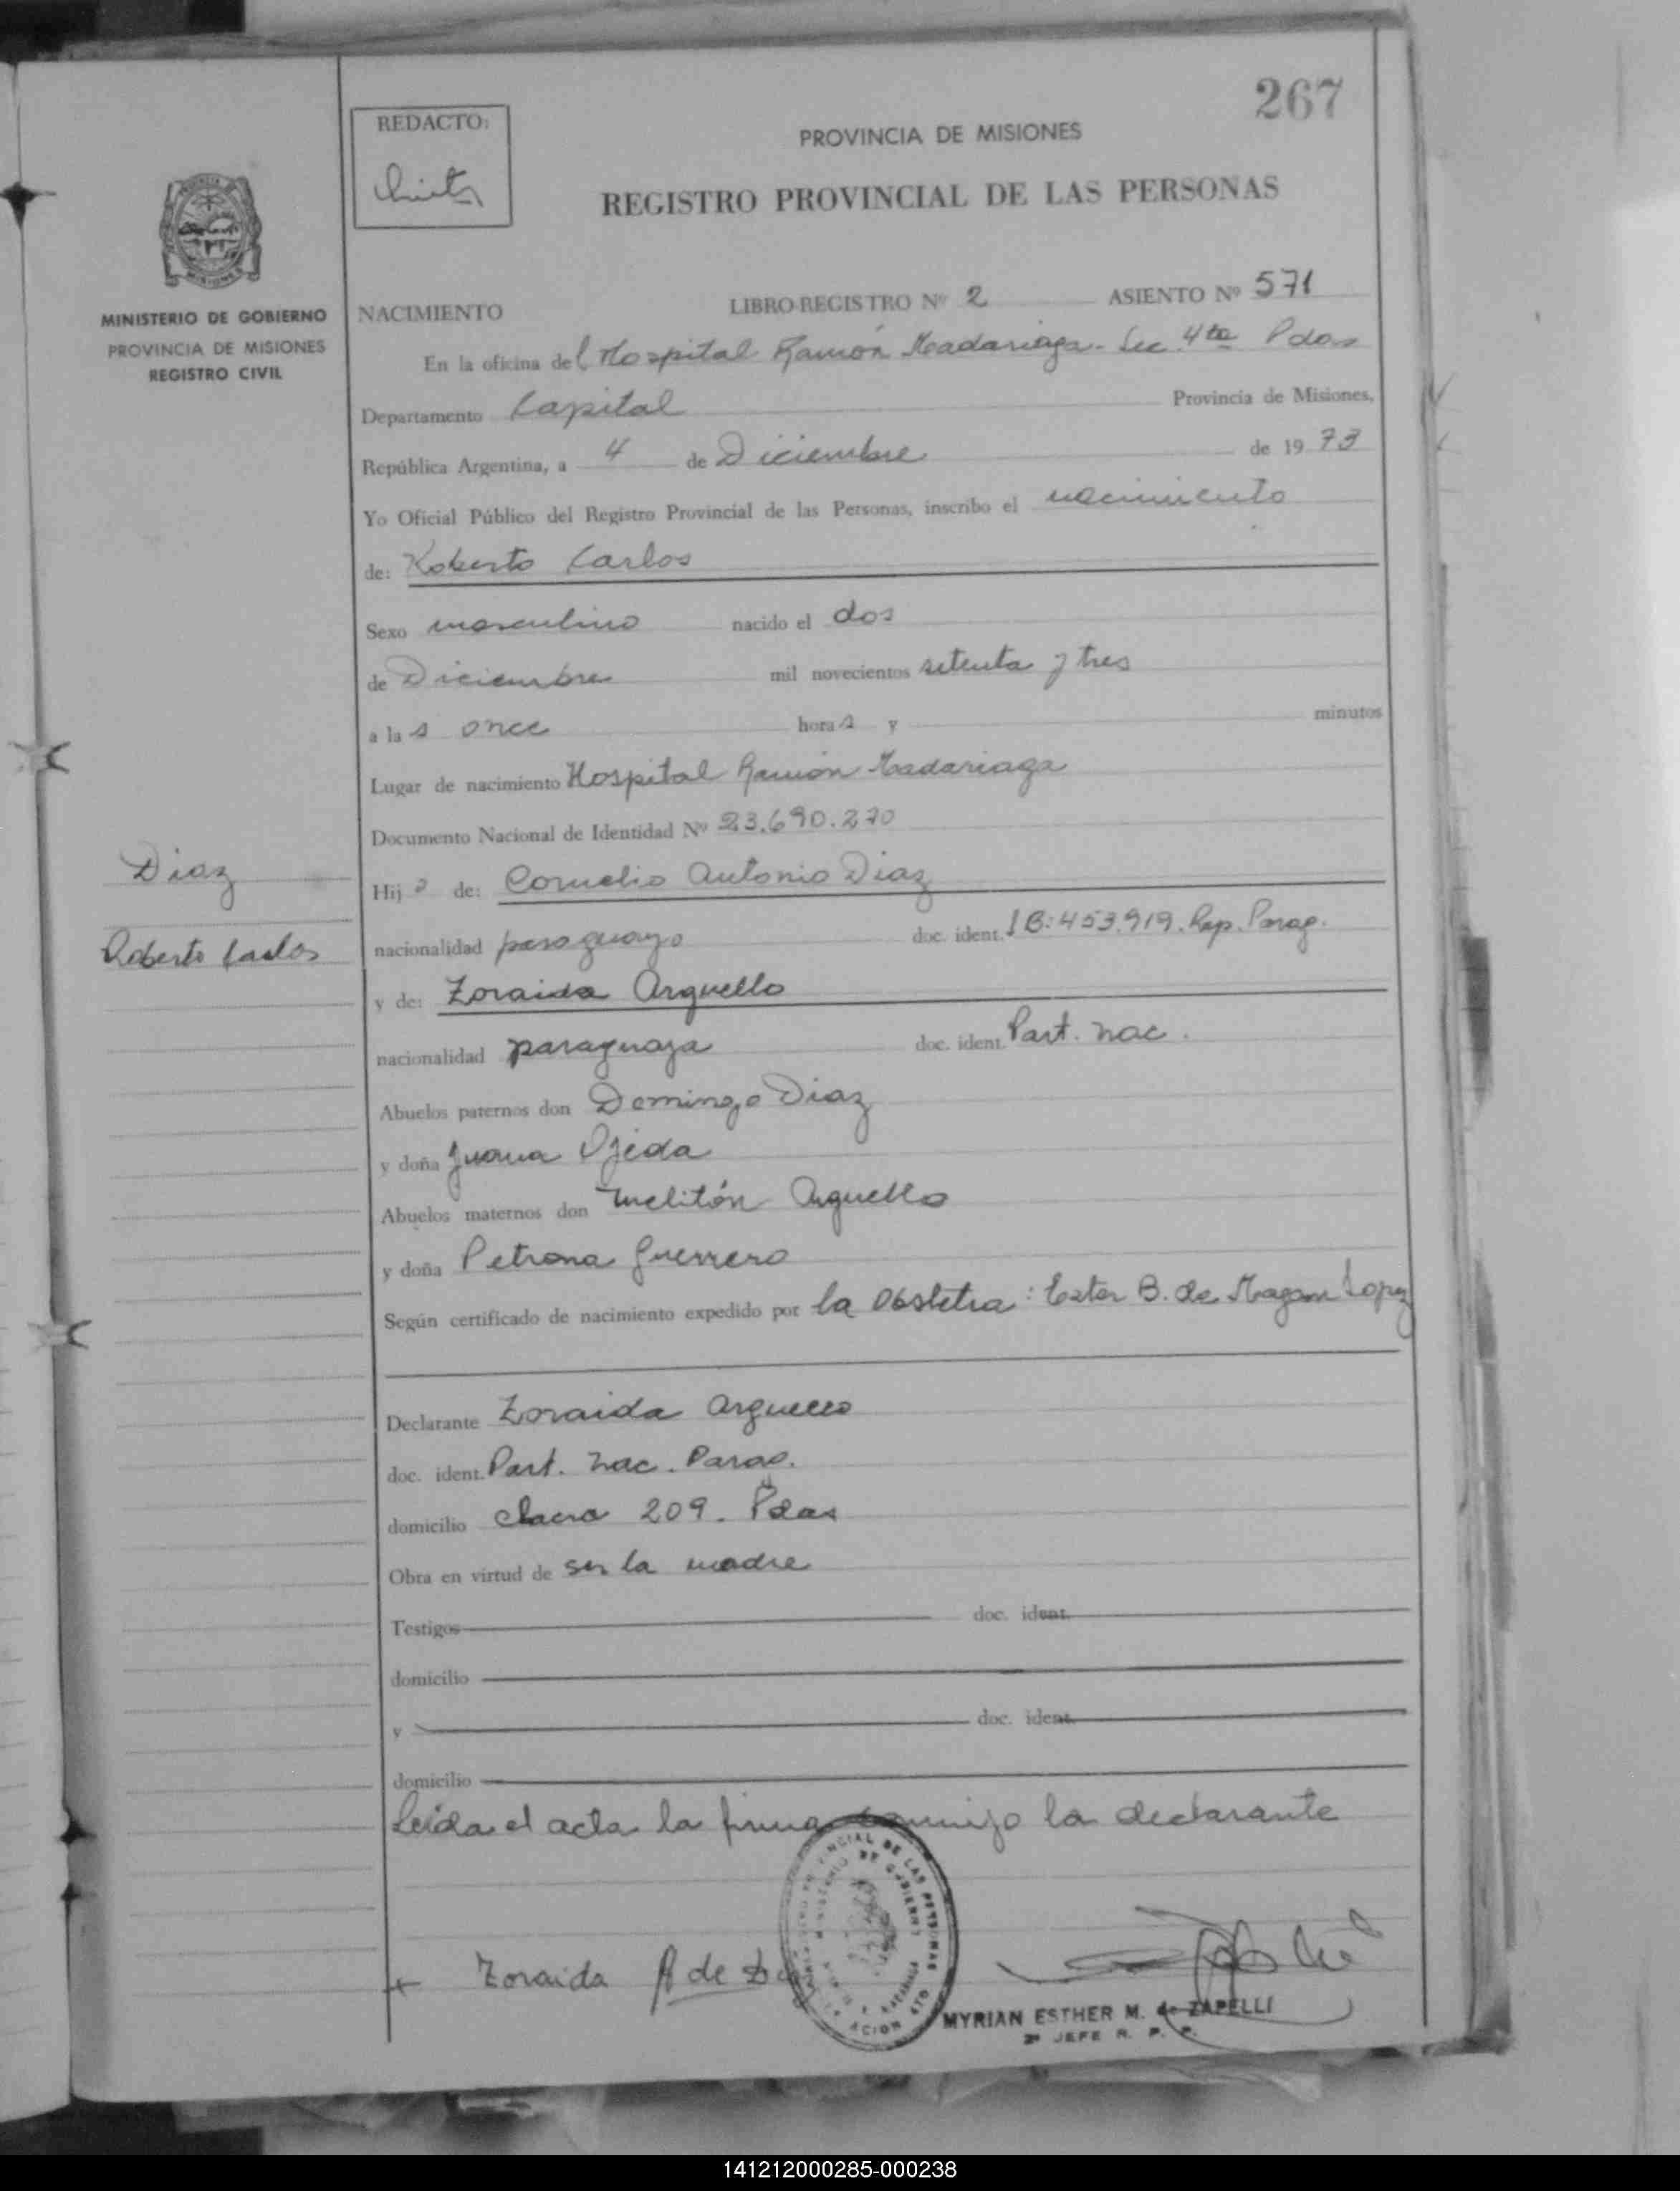 267
REDACTO:
PROVINCIA DE MISIONES
REGISTRO PROVINCIAL DE LAS PERSONAS
MINISTERIO DE GOBIERNO
PROVINCIA DE MISIONES
REGISTRO CIVIL
NACIMIENTO LIBRO-REGISTRO Nº 2 ASIENTO Nº 571
En la oficina del Hospital Ramón Madariaga - Sec. 4ta Pdas
Departamento Capital Provincia de Misiones,
República Argentina, a 4 de Diciembre de 1973
Yo Oficial Público del Registro Provincial de las Personas, inscribo el nacimiento
de: Roberto Carlos
Sexo masculino nacido el dos
de Diciembre mil novecientos setenta y tres
a las once horas y minutos
Lugar de nacimiento Hospital Ramón Madariaga
Documento Nacional de Identidad Nº 23.690.270
Diaz
Hijo de: Cornelio Antonio Diaz
Roberto Carlos
nacionalidad paraguayo doc. ident. IB: 453.919. Rep. Parag.
y de: Zoraida Arguello
nacionalidad paraguaya doc. ident. Part. nac.
Abuelos paternos don Domingo Diaz
y doña Juana Ojeda
Abuelos maternos don Melitón Arguello
y doña Petrona Guerrero
Según certificado de nacimiento expedido por la Obstetra: Ester B. de Lopez
Declarante Zoraida Arguello
doc. ident. Part. nac. Parag.
domicilio Chacra 209. Pdas
Obra en virtud de ser la madre
Testigos doc. ident.
domicilio
y doc. ident.
domicilio
Leida el acta la firma conmigo la declarante
Zoraida A de
MYRIAN ESTHER M. de ZAPELLI
2º JEFE R. P. P.
141212000285-000238